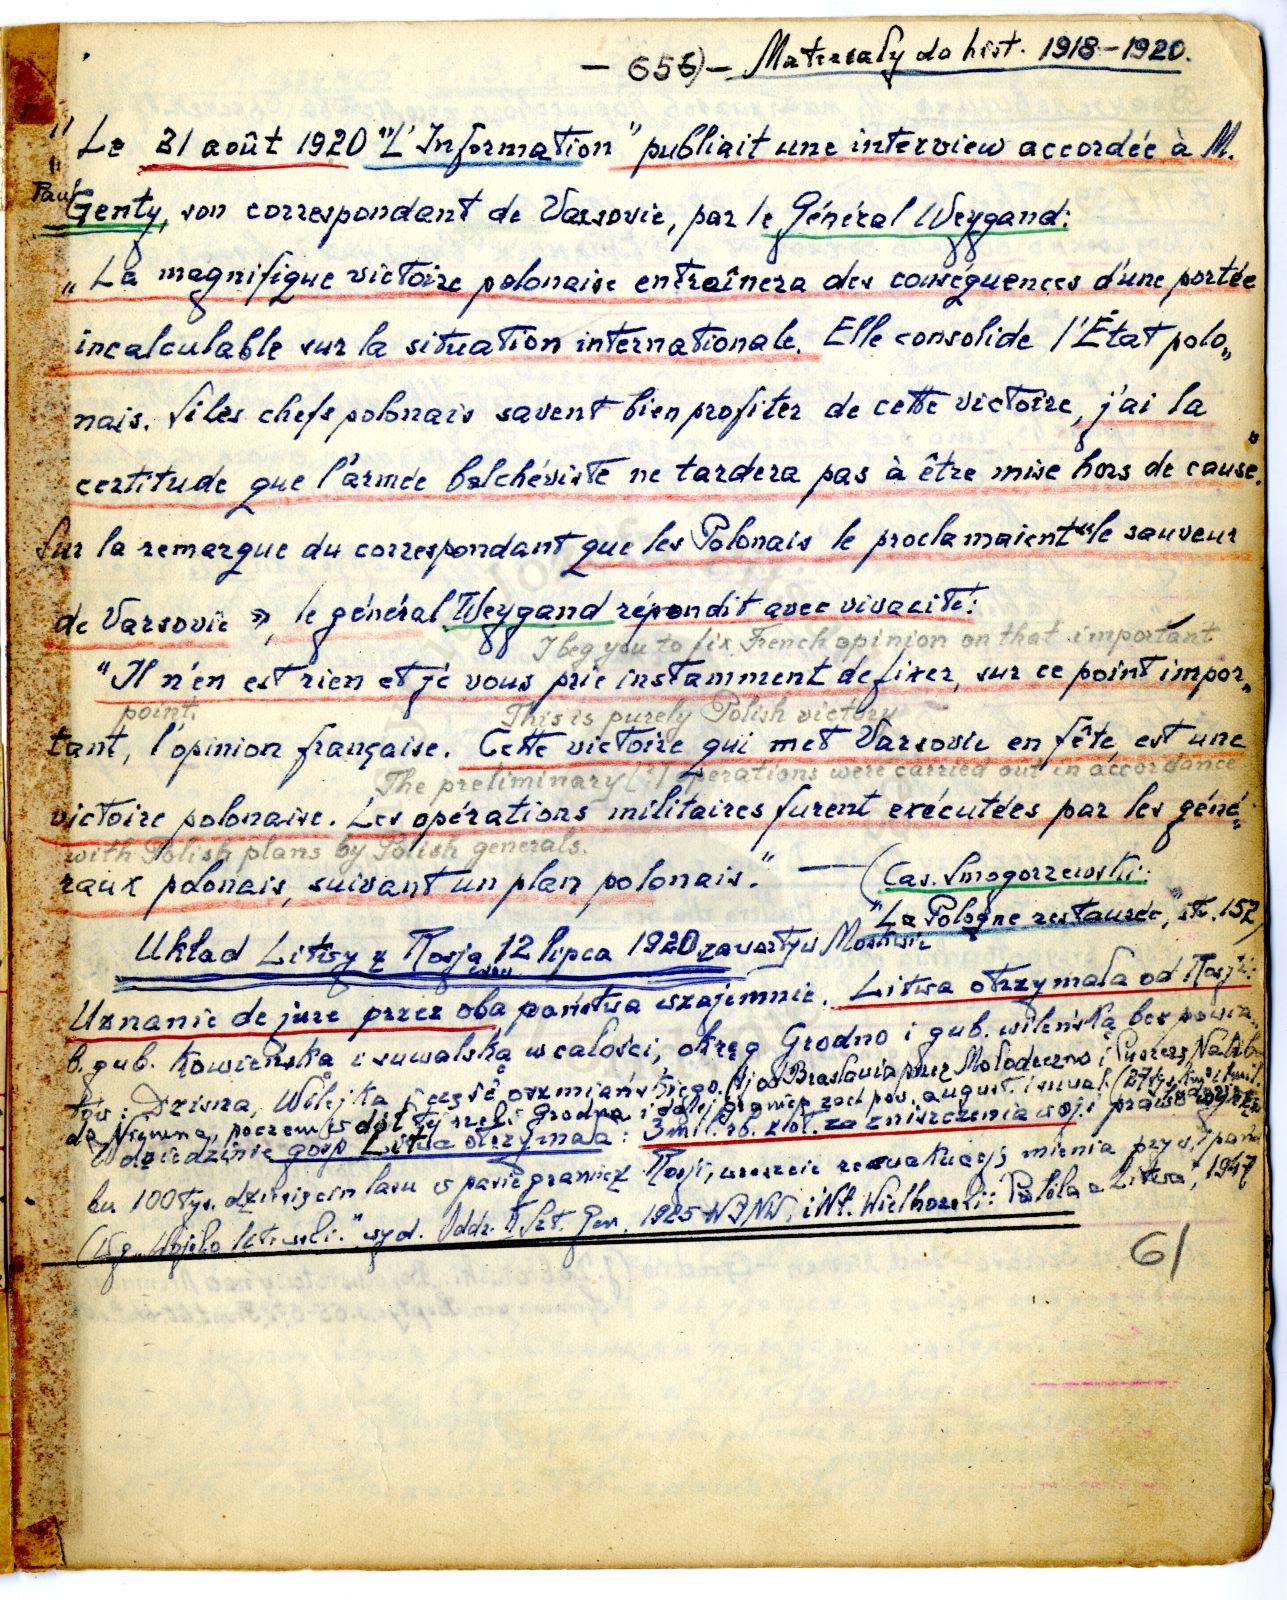 — 655) — Materiały do hist. 1918–1920.
" Le 21 août 1920 "L'Information" publiait une interview accordée à M.
Paul Genty, son correspondant de Varsovie, par le Général Weygand:
„La magnifique victoire polonaise entraînera des conséquences d'une portée
incalculable sur la situation internationale. Elle consolide l'État polo„
nais. Si les chefs polonais savent bien profiter de cette victoire, j'ai la
certitude que l'armée bolchéviste ne tardera pas à être mise hors de cause."
Sur la remarque du correspondant que les Polonais le proclamaient "le sauveur
de Varsovie », le général Weygand répondit avec vivacité:
I beg you to fix French opinion on that important
"Il n'en est rien et je vous prie instamment de fixer, sur ce point impor„
point. This is purely Polish victory
tant, l'opinion française. Cette victoire qui met Varsovie en fête, est une
The preliminary (?) operations were carried out in accordance
victoire polonaise. Les opérations militaires furent exécutées par les géné„
with Polish plans by Polish generals.
raux polonais, suivant un plan polonais." — (Cas. Smogorzewski:
"La Pologne restaurée," str. 152)
Układ Litwy z Rosją 12 lipca 1920 zawarty w Moskwie
Uznanie de jure przez oba państwa wzajemnie. Litwa otrzymała od Rosji:
b. gub. Kowieńską i suwalską w całości, okręg Grodno i gub. wileńską bez powia„
tów: Dzisna, Wilejka i część oszmiańskiego.
do Niemna, poczem
Litwa otrzymała: 3 mil. rb. zł. za zniszczenia woj. i prawo
100 tys. dziesięcin lasu w pasie granicz. Rosji, wreszcie mienia
1925 i Wł. Wielhorski: Polska a Litwa, 1947
61